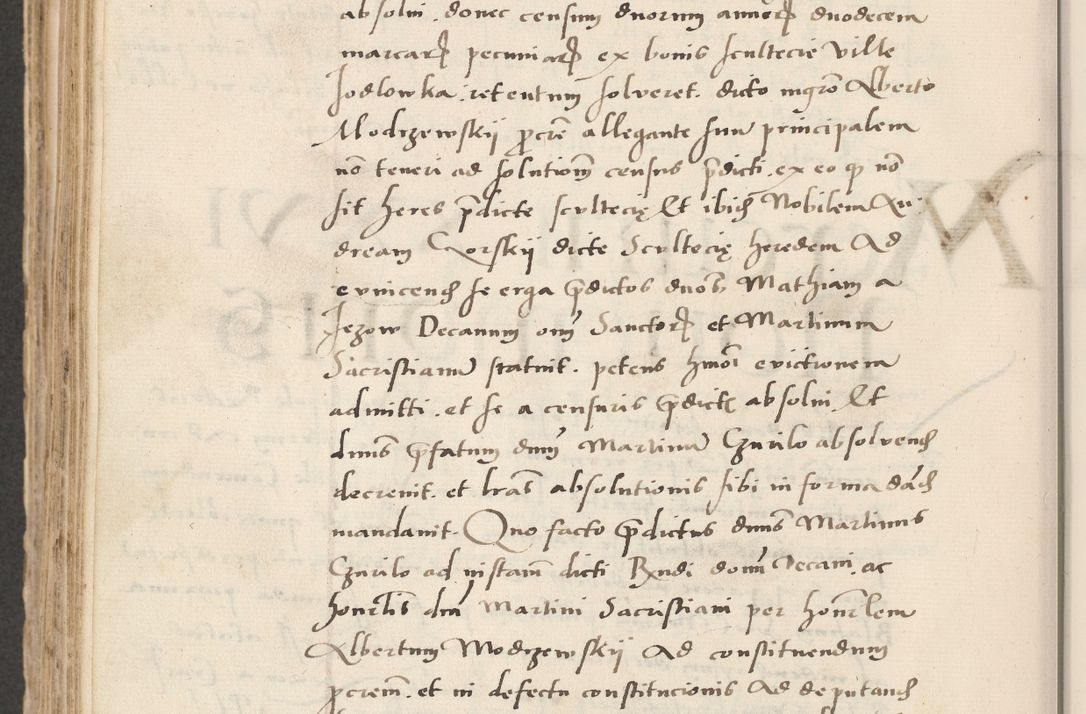 absolui . donec censum duorum annorꝝ duodecem
marcarꝝ pecuniarꝝ ex bonis scultecie ville
Jodlowka . retentum solveret . dicto mgro Alberto
Modrzewskij ꝓcre allegante suu principalem
no teneri ad solutiom census pdicti . ex eo ꝙ no
sit heres pdicte scultecię Et ibid Nobilem An
dream Gorskij dicte Scultecię heredem Ad
evincend se erga pdictos duos Mathiam a
Jezow Decanum om Sanctorꝝ et Martinum
Sacristianu statuit . petens hmoi evictionem
admitti . et se a censuris pdictis absolui . Et
duns pfatum dnum Martinu Czurilo absolvend
decrevit . et lras absolutionis sibi in forma dand
mandavit . Quo facto pdictus duns Martinus
Czurilo ad instam dicti Rndi domi Decani . ac
honrlis dni Martini Sacristiani per honrlem
Albertum Modrzewskij Ad constituendum
ꝓcrem . et in defectu constitucionis Ad deputand